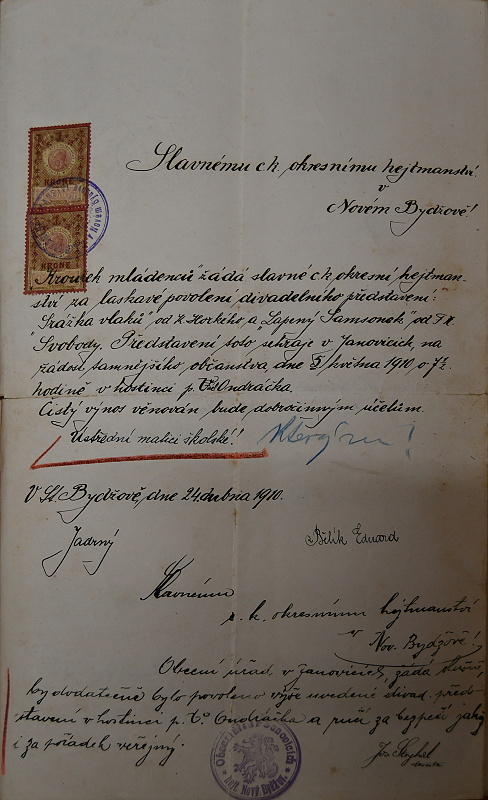 Slavnému c.k. okresnímu hejtmanství
v
Novém Bydžově!
KRONE
KRONE
"Kroužek mládenců" žádá slavné c.k. okresní hejtman-
ství za laskavé povolení divadelního představení:
"Srážka vlaků" od Z. Horkého a "Lapený Samsonek" od Fr.
Svobody. Představení toto sehraje v Janovicích, na
žádost tamnějšího občanstva, dne května 1910 o 7½
hodině v hostinci p. Ondráčka.
Čistý výnos věnován bude dobročinným účelům.
Ústřední matici školské! Kterým!
V St. Bydžově, dne 24. dubna 1910.
Jadrný
Bělík Eduard
Slavnému
c. k. okresnímu hejtmanství
v
Nov. Bydžově!
Obecní úřad v Janovicích, žádá
by dodatečně bylo povoleno výše uvedené divad. před-
stavení v hostinci p. Ondráčka a ručí za bezpečí jakož
i za pořádek veřejný.